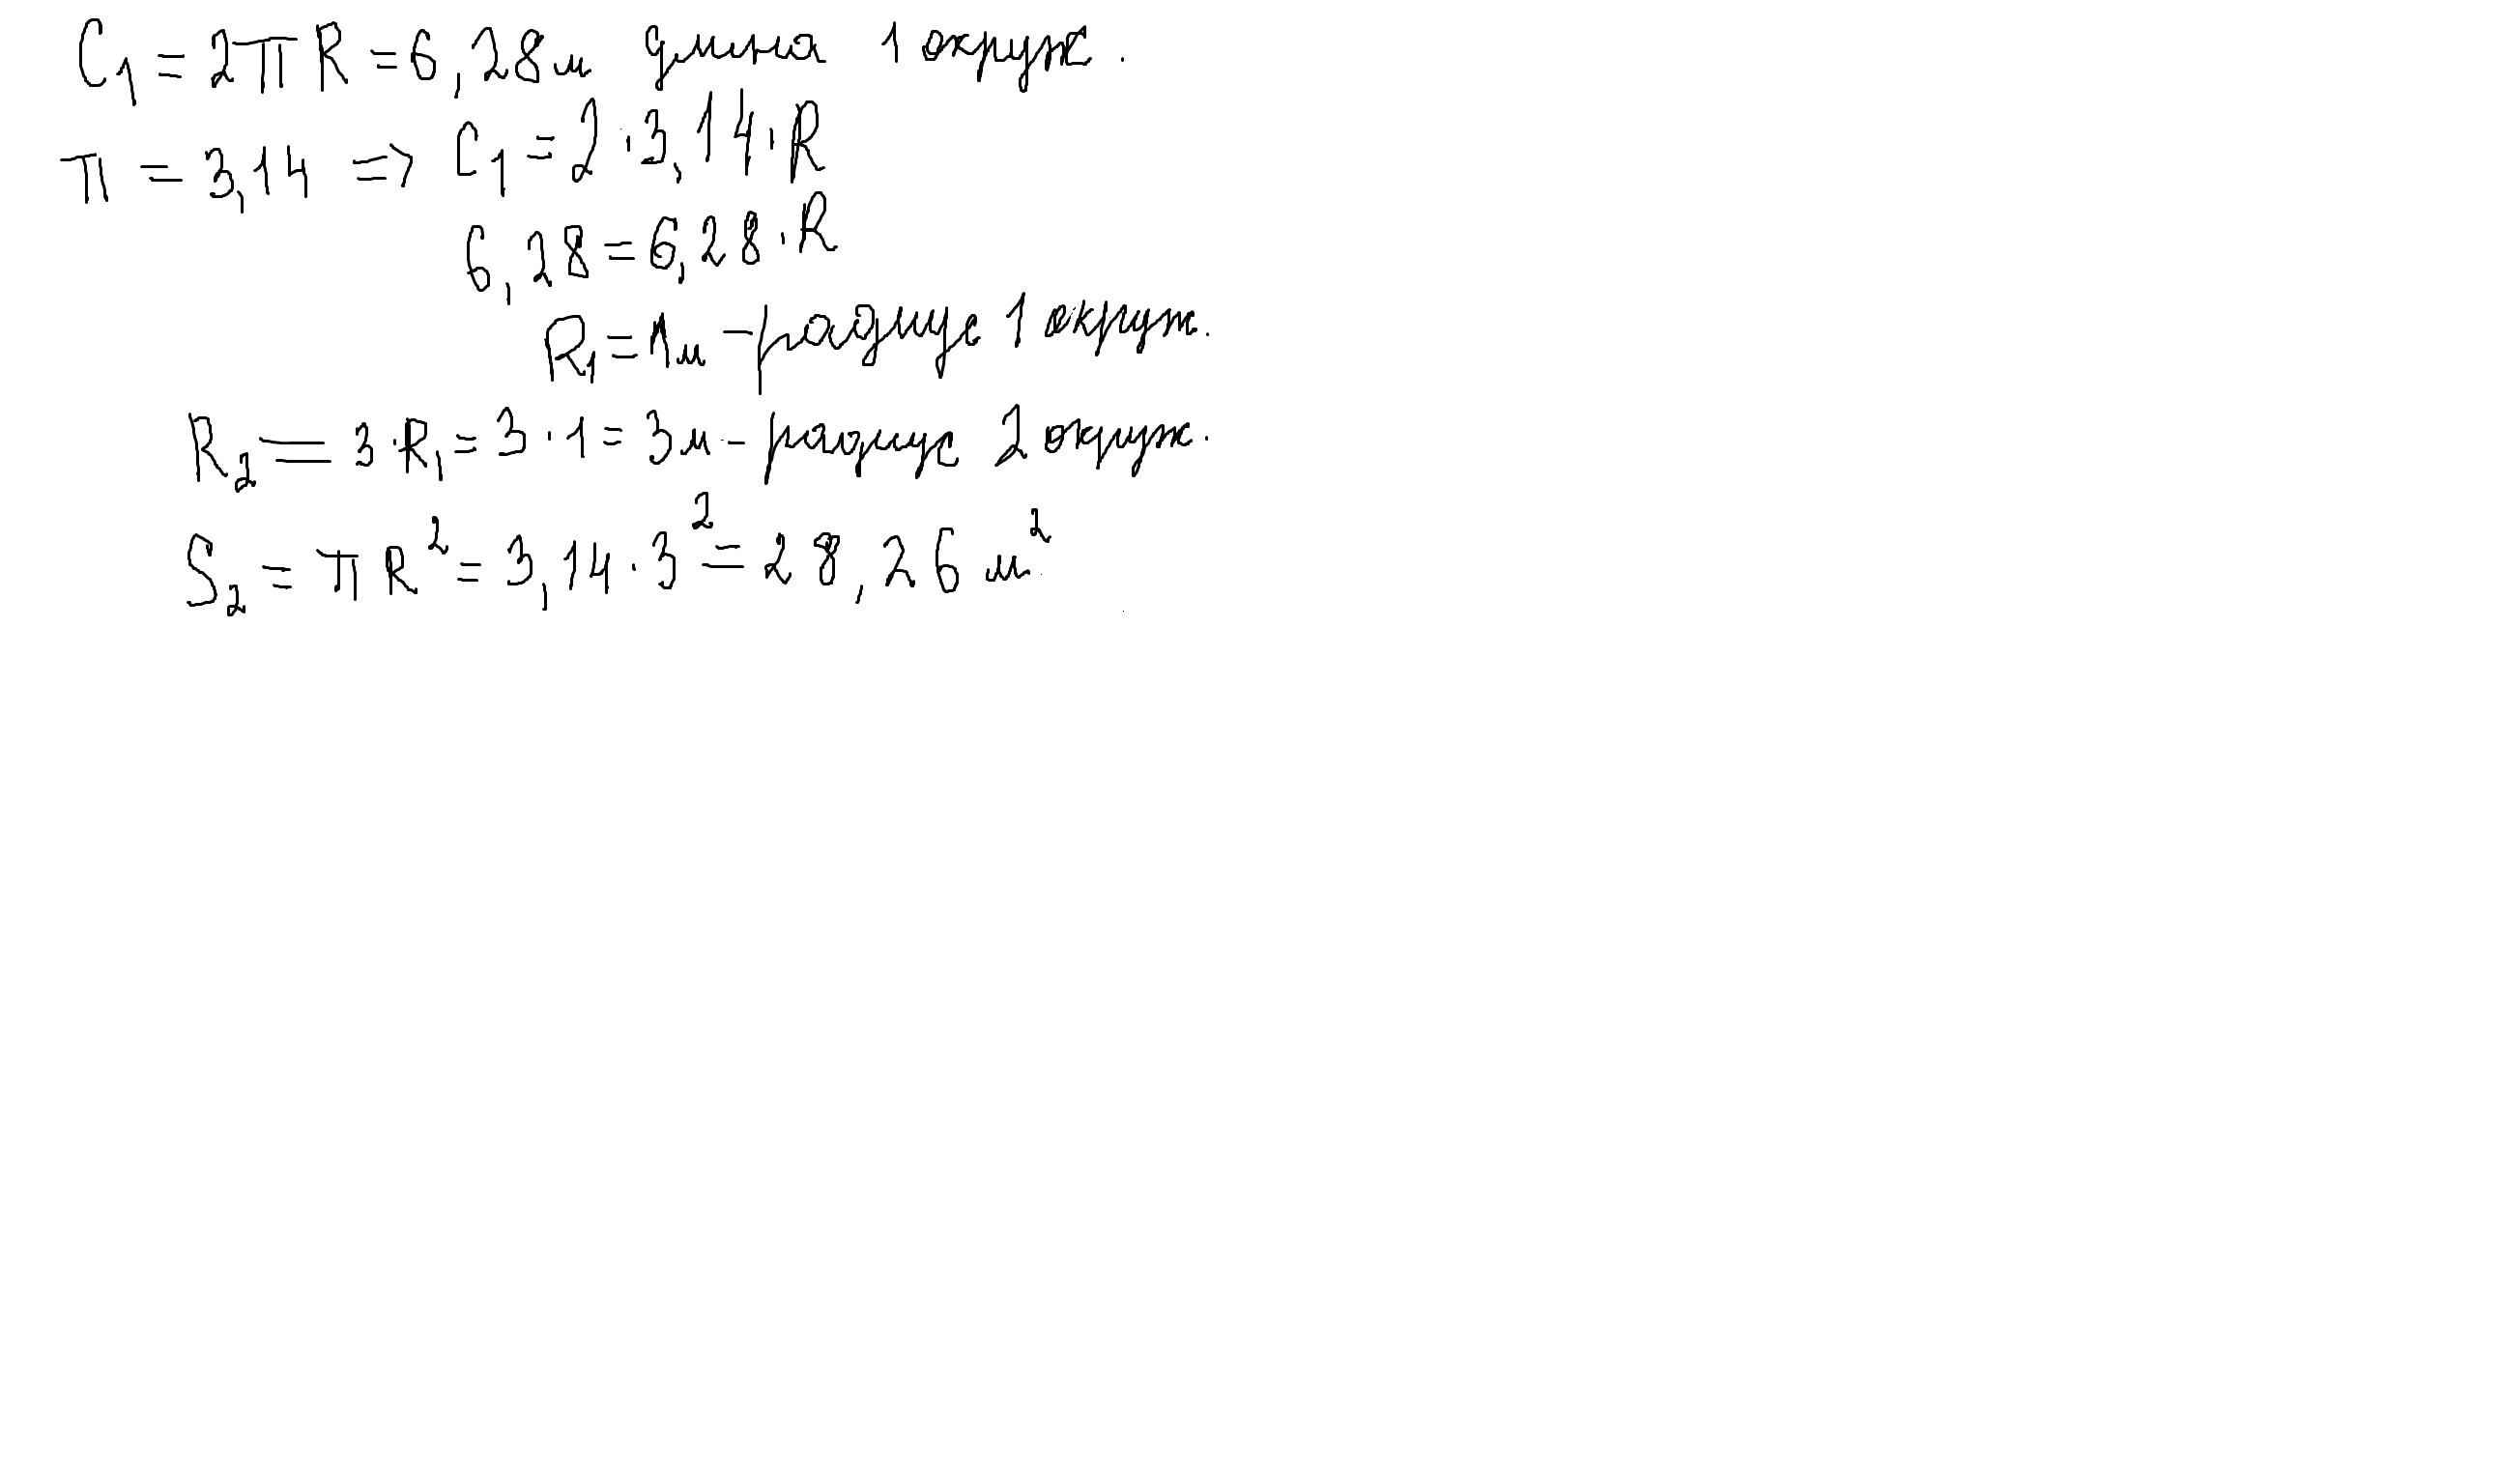 C₁ = 2πR = 6,28м длина 1 окруж.
π = 3,14 => C₁ = 2·3,14·R
6,28 = 6,28·R
R₁ = 1м – радиус 1 окруж.
R₂ = 3·R₁ = 3·1 = 3м – радиус 2 окруж.
S₂ = πR² = 3,14·3² = 28,26м²